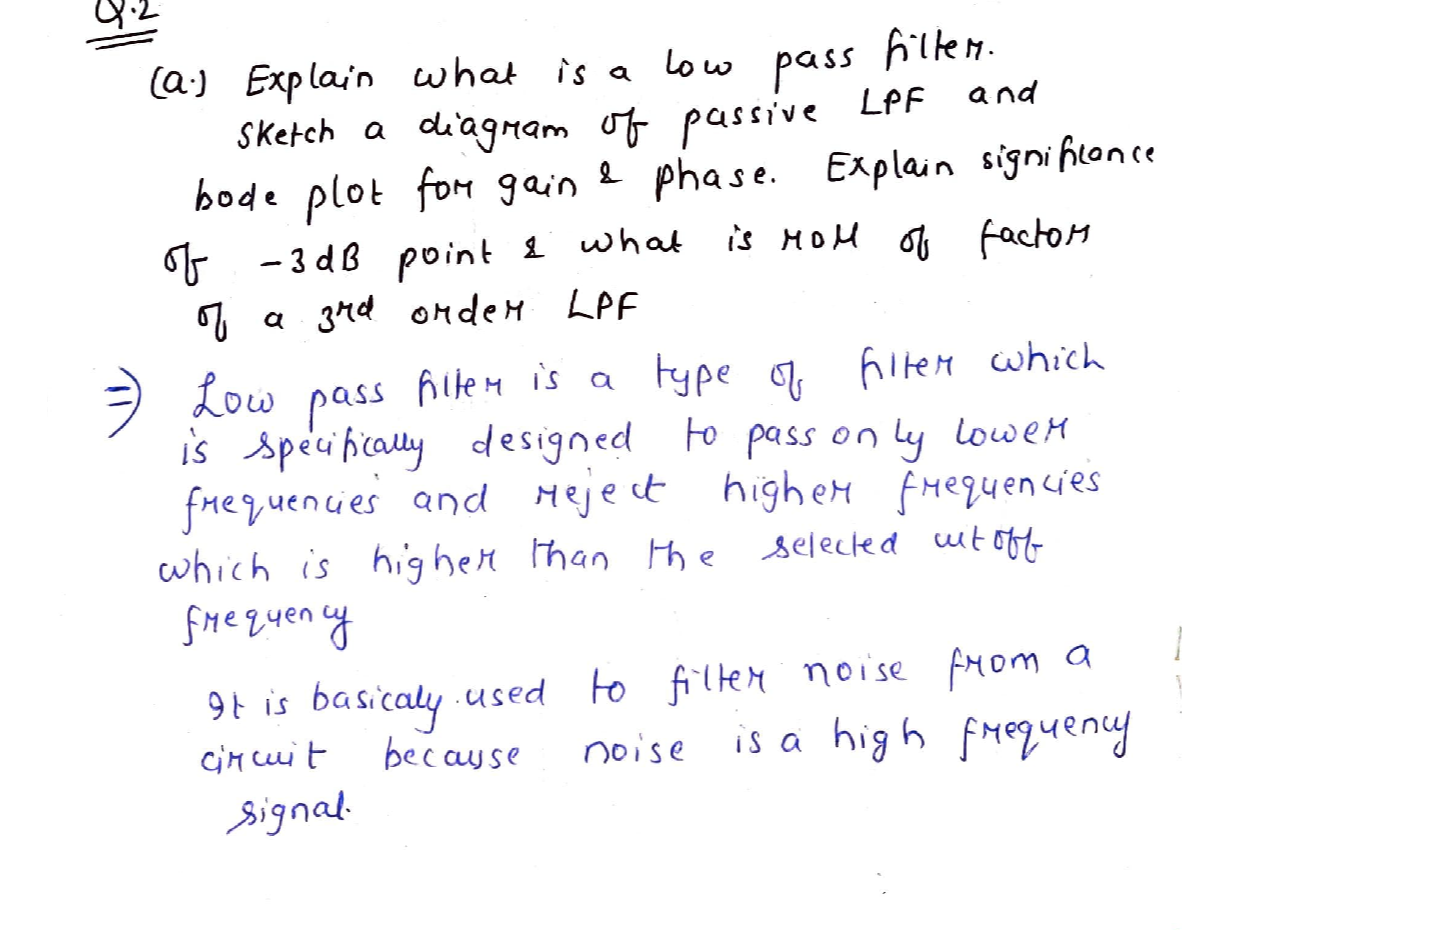 Q.2
(a.) Explain what is a low pass filter.
Sketch a diagram of passive LPF and
bode plot for gain & phase. Explain significance
of -3dB point & what is roll of factor
of a 3rd order LPF
⇒ Low pass filter is a type of filter which
is specifically designed to pass only lower
frequencies and reject higher frequencies
which is higher than the selected cutoff
frequency
It is basicaly used to filter noise from a
circuit because noise is a high frequency
signal.